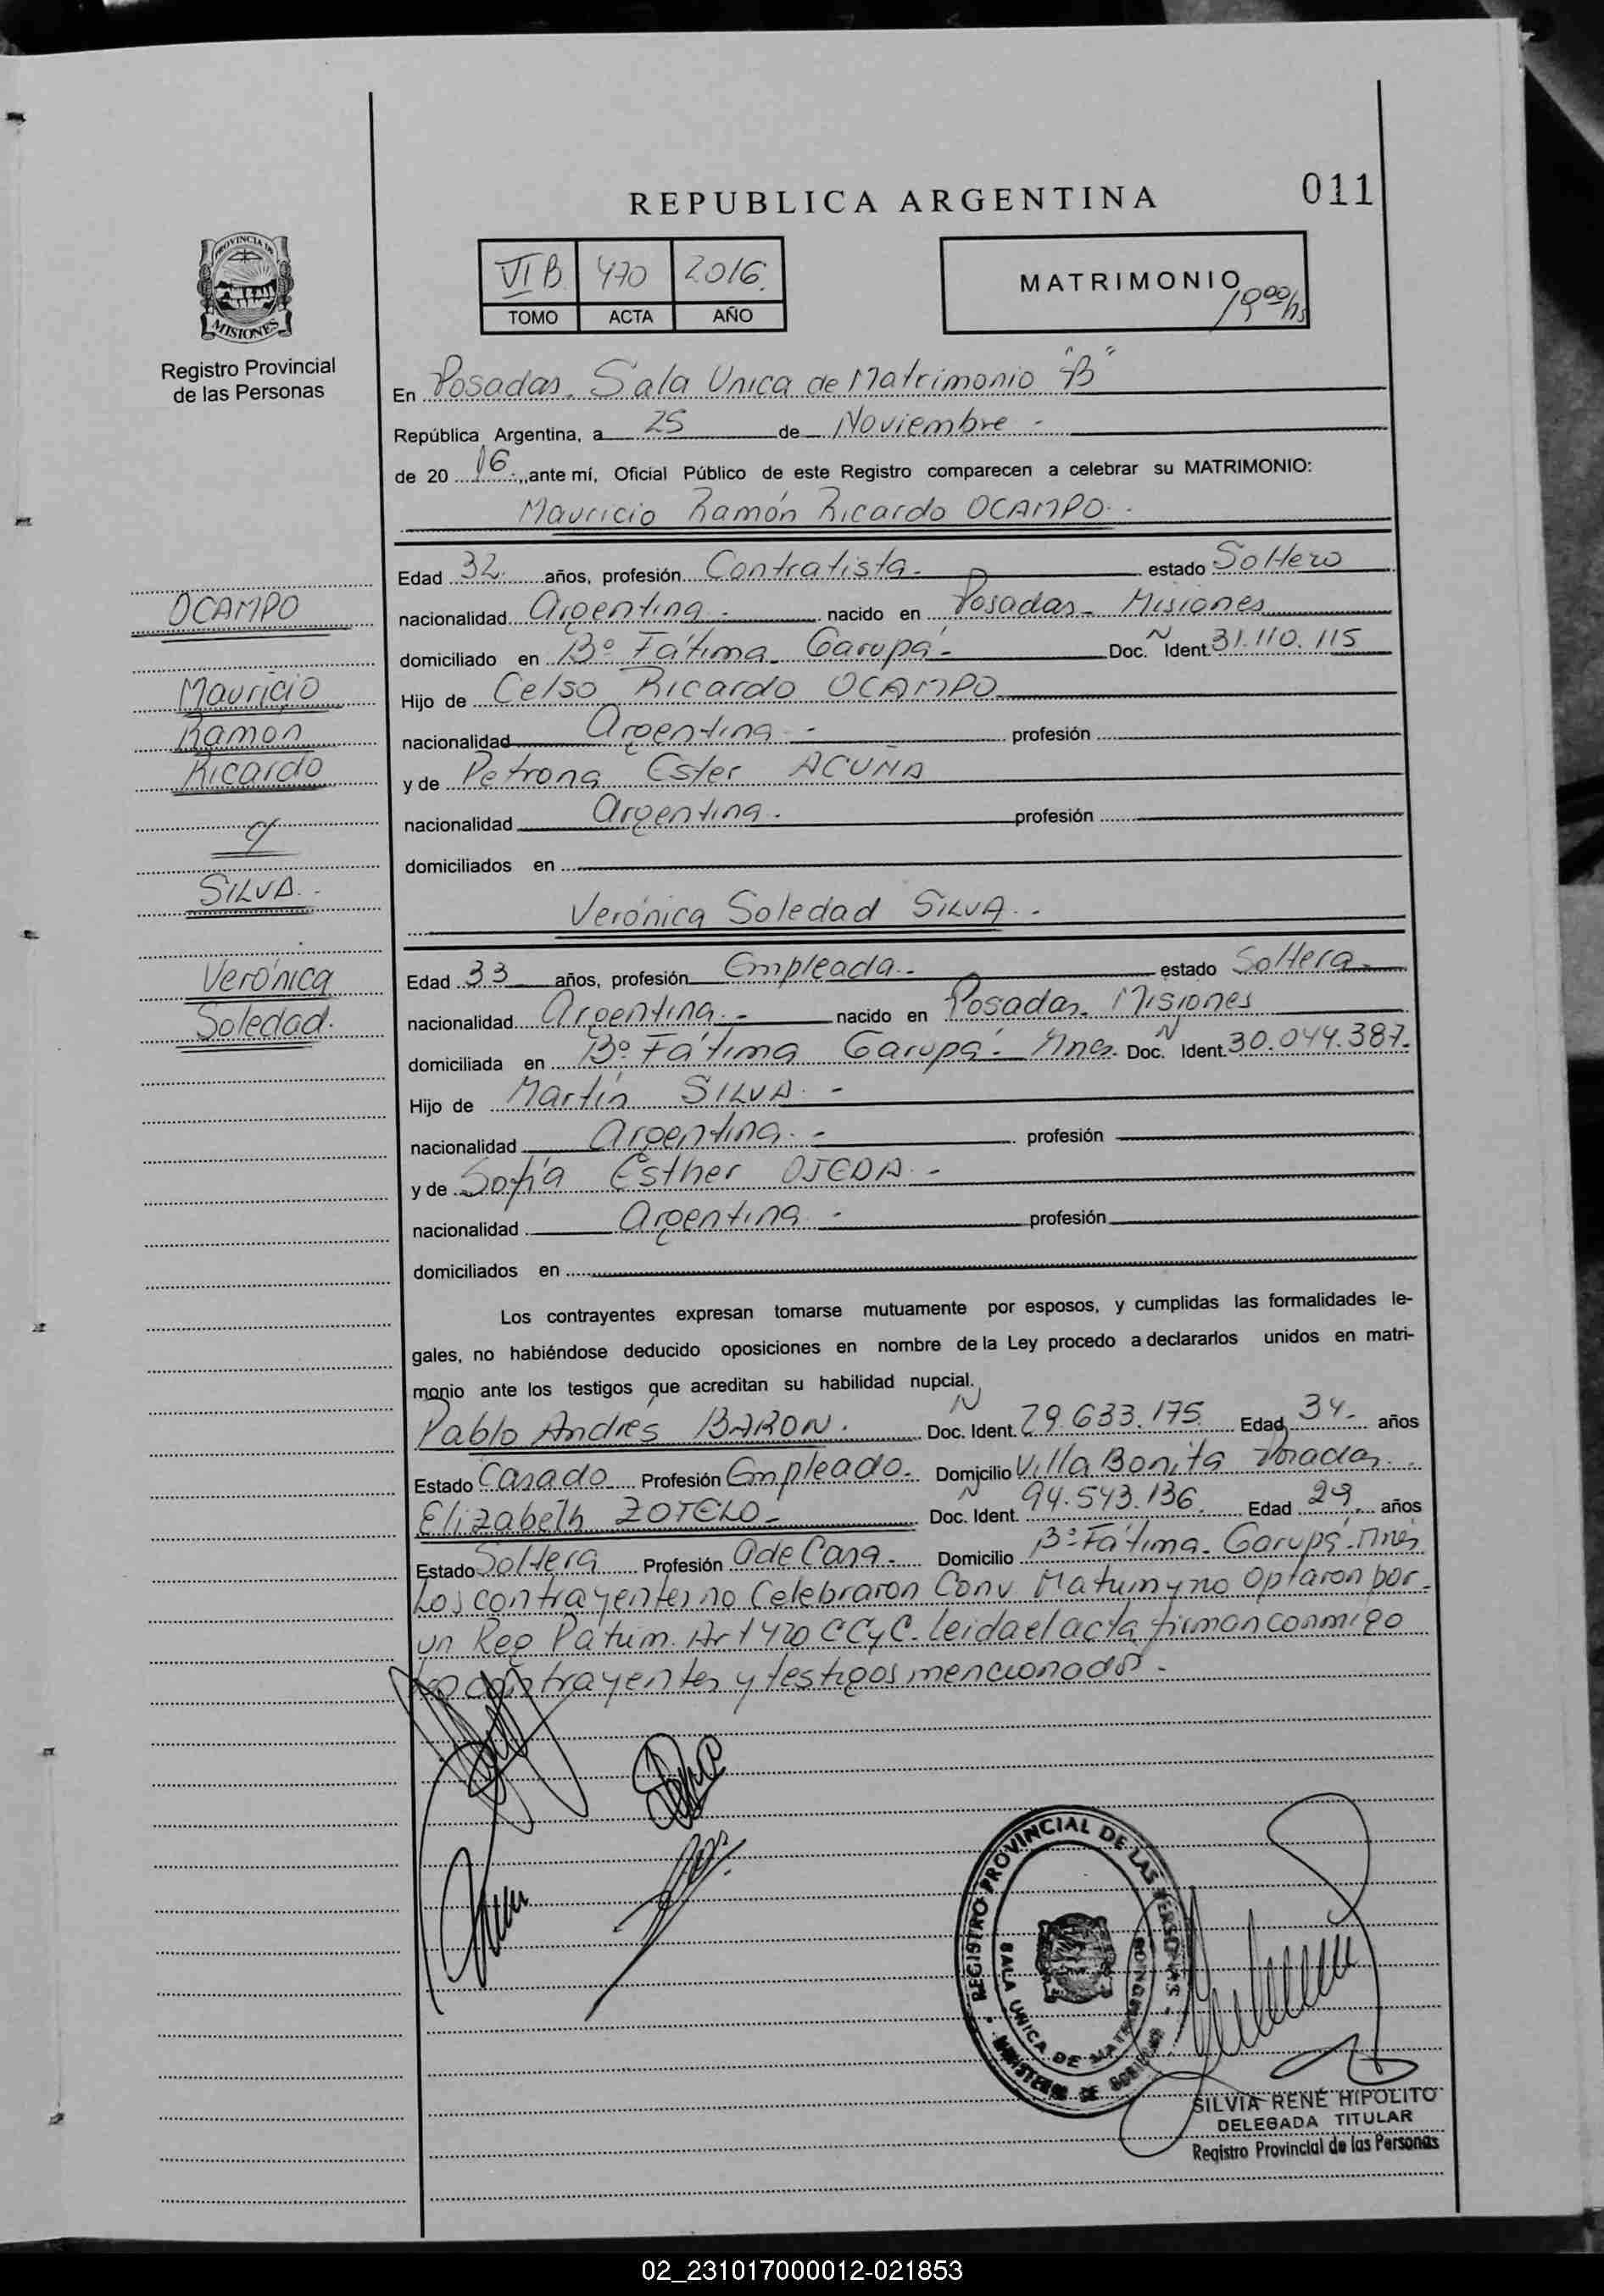 REPUBLICA ARGENTINA
011
VI B 470 2016.
TOMO ACTA AÑO
MATRIMONIO
19 00 hs
PROVINCIA DE
MISIONES
Registro Provincial
de las Personas
En Posadas. Sala Unica de Matrimonio "B"
República Argentina, a 25 de Noviembre -
de 20 16 ,,ante mí, Oficial Público de este Registro comparecen a celebrar su MATRIMONIO:
Mauricio Ramón Ricardo OCAMPO. -
Edad 32. años, profesión Contratista. estado Soltero
nacionalidad Argentina - nacido en Posadas - Misiones
domiciliado en Bº Fátima - Garupá - Doc. N Ident. 31.110.115
Hijo de Celso Ricardo OCAMPO
nacionalidad Argentina - profesión
y de Petrona Ester ACUÑA
nacionalidad Argentina. profesión
domiciliados en
OCAMPO
Mauricio
Ramon
Ricardo
c/
SILVA. -
Verónica
Soledad.
Verónica Soledad SILVA. -
Edad 33 años, profesión Empleada. - estado Soltera
nacionalidad Argentina. - nacido en Posadas. Misiones
domiciliada en Bº Fátima Garupá - Mnes. Doc. N Ident. 30.044.387.
Hijo de Martín SILVA. -
nacionalidad Argentina. - profesión
y de Sofía Esther OJEDA. -
nacionalidad Argentina - profesión
domiciliados en
Los contrayentes expresan tomarse mutuamente por esposos, y cumplidas las formalidades le-
gales, no habiéndose deducido oposiciones en nombre de la Ley procedo a declararlos unidos en matri-
monio ante los testigos que acreditan su habilidad nupcial.
Pablo Andrés BARON. Doc. Ident. N 29.633.175 Edad 34- años
Estado Casado Profesión Empleado. Domicilio Villa Bonita Posadas. .
Elizabeth ZOTELO - Doc. Ident. N 94.543.136. Edad 29 años
Estado Soltera Profesión A de Casa - Domicilio Bº Fátima - Garupá - Mnes
Los contrayentes no Celebraron Conv. Matrim y no optaron por
un Reg Patrim. Art 420 CCyC. leida el acta, firman conmigo
los contrayentes y testigos mencionados -
REGISTRO PROVINCIAL DE LAS PERSONAS
SALA UNICA DE MATRIMONIOS
MINISTERIO DE GOBIERNO
SILVIA RENÉ HIPOLITO
DELEGADA TITULAR
Registro Provincial de las Personas
02_231017000012-021853